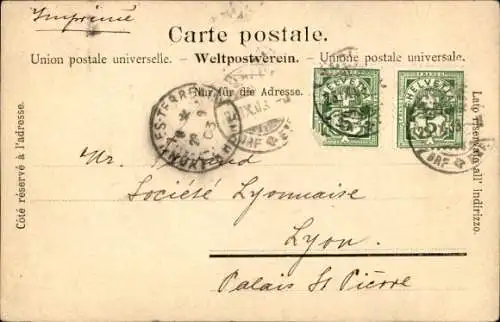 Imprimé
Carte postale.
Union postale universelle. - Weltpostverein. - Unione postale universale.
Nur für die Adresse.
Côté réservé à l'adresse.
Lato riservato all' indirizzo.
HELVETIA
5
HELVETIA
5
Mr.
Société Lyonnaise
Lyon.
Palais St Pierre